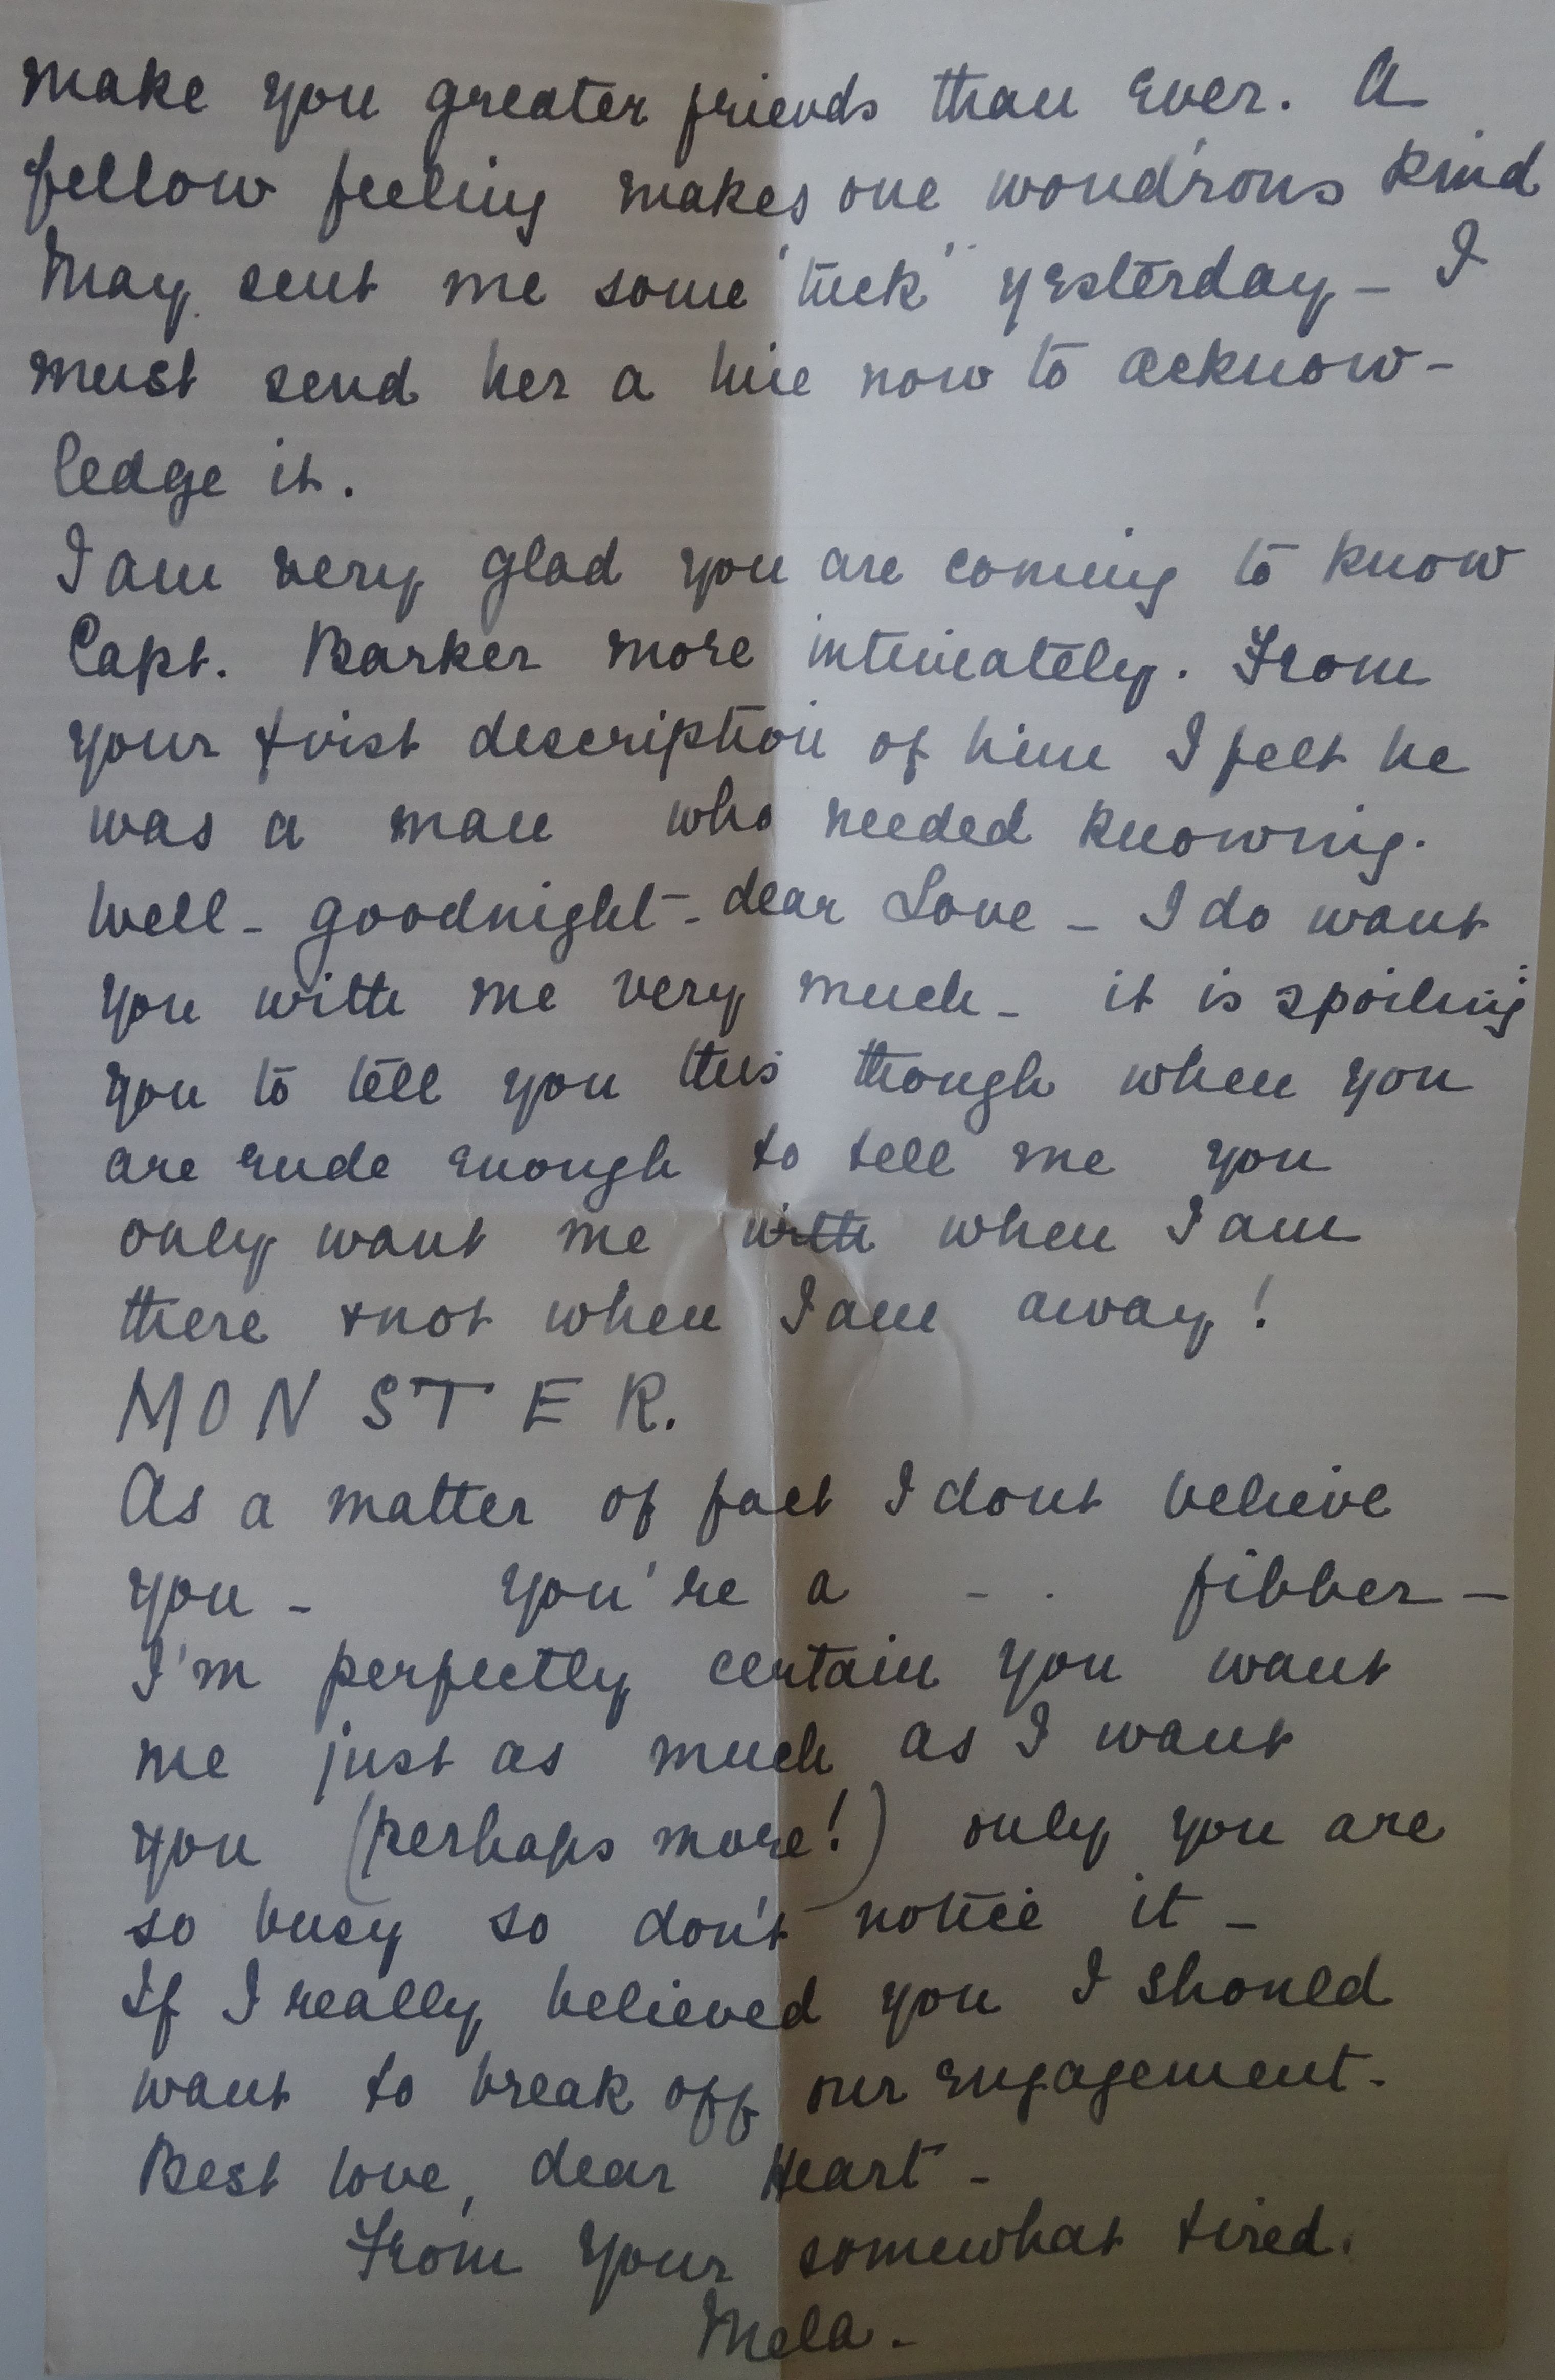 make you greater friends than ever. A
fellow feeling makes one wond'rous kind
May sent me some 'tuck' yesterday – I
must send her a line now to acknow-
ledge it.
I am very glad you are coming to know
Capt. Barker more intimately. From
your first description of him I felt he
was a man who needed knowing.
Well – goodnight – dear Love – I do want
you with me very much – it is spoiling
you to tell you this though when you
are rude enough to tell me you
only want me with when I am
there & not when I am away!
MONSTER.
As a matter of fact I dont believe
you – you're a - . fibber –
I'm perfectly certain you want
me just as much as I want
you (perhaps more!) only you are
so busy so don't notice it –
If I really believed you I should
want to break off our engagement.
Best love, dear Heart –
From your somewhat tired.
Mela –